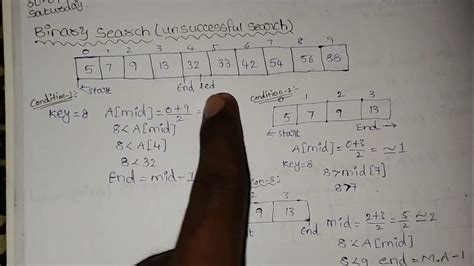 Saturday
Binary Search (unsuccessful search)
0 1 2 3 4 5 6 7 8 9
5 7 9 13 32 33 42 54 56 88
start End
Condition-1:
Key=8 A[mid]=0+9/2=
8<A[mid]
8<A[4]
8<32
End=mid-1
Condition-2:
0 1 2 3
5 7 9 13
start End
A[mid]=0+3/2=≃1
Key=8 8>mid[7]
8>7
2 3
9 13
mid=2+3/2=5/2≃2
8<A[mid]
8<9 end=M.A-1